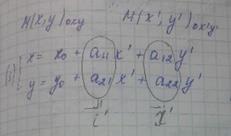 M(x,y)oxy M(x',y')ox'y'
(1) { x = x₀ + a₁₁ x' + a₁₂ y'
y = y₀ + a₂₁ x' + a₂₂ y'
i' j'